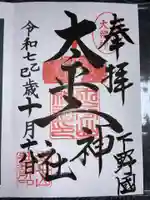 奉拝
下野國
太平山神社
令和七乙巳歳十月十八日